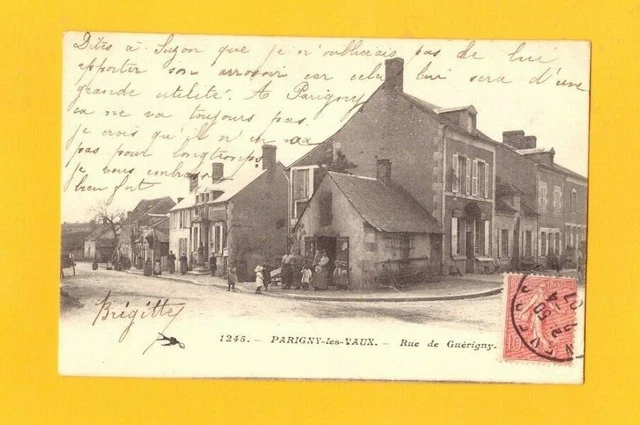 Dites à Suzon que je n'oublierais pas de lui
apporter son arrosoir car cela lui sera d'une
grande utilité. A Parigny
ça ne va toujours pas.
je crois qu'il n'en a
pas pour longtemps
je vous embrasse
bien fort
Brigitte
1245. - PARIGNY-les-VAUX. - Rue de Guérigny.
NEVERS